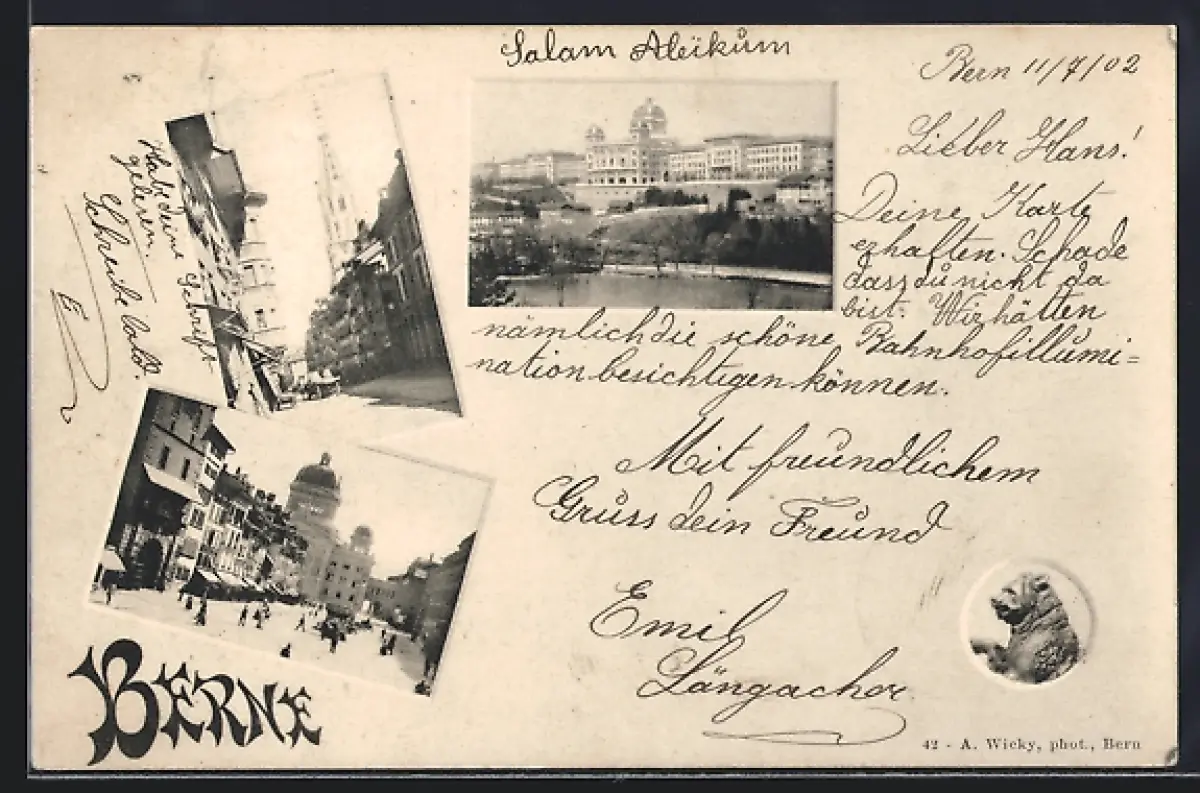 Salam Aleikum
Bern 11/7/02
Lieber Hans!
Deine Karte
erhalten. Schade
dass du nicht da
bist. Wir hätten
nämlich die schöne Bahnhofillumi=
nation besichtigen können.
Mit freundlichem
Gruss dein Freund
Emil
Längacher
Hab deine Schrift
gelesen.
Schreibe bald.
E
BERNE
42 - A. Wicky, phot., Bern